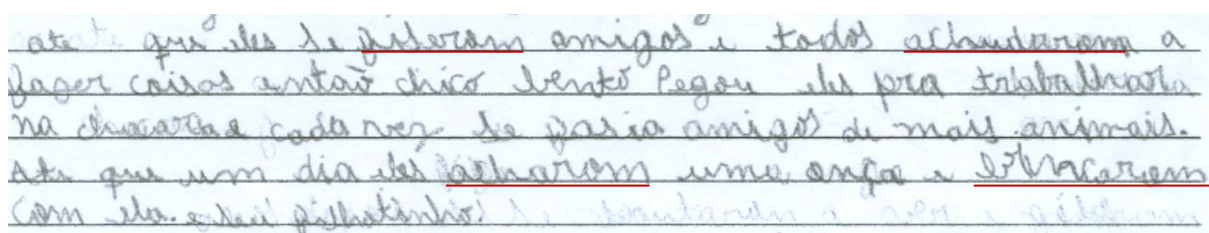 ate que eles se fiseram amigos e todos achudaram a
fazer coisas antaõ chico bento Pegou eles pra trabalhar
na chacara e cada vez se fasia amigos de mais animais.
Ate que um dia eles acharam uma onça e brincaram
com ela. e seu filhotinho